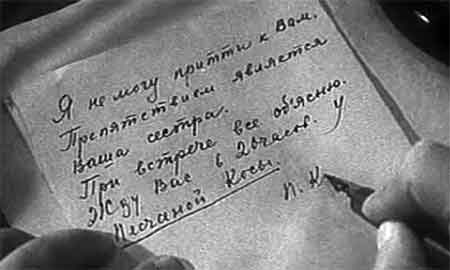 Я не могу притти к Вам.
Препятствием является
Ваша сестра.
При встрече все об'ясню.
Жду Вас в 20 часов. у
Песчаной Косы.
П. К